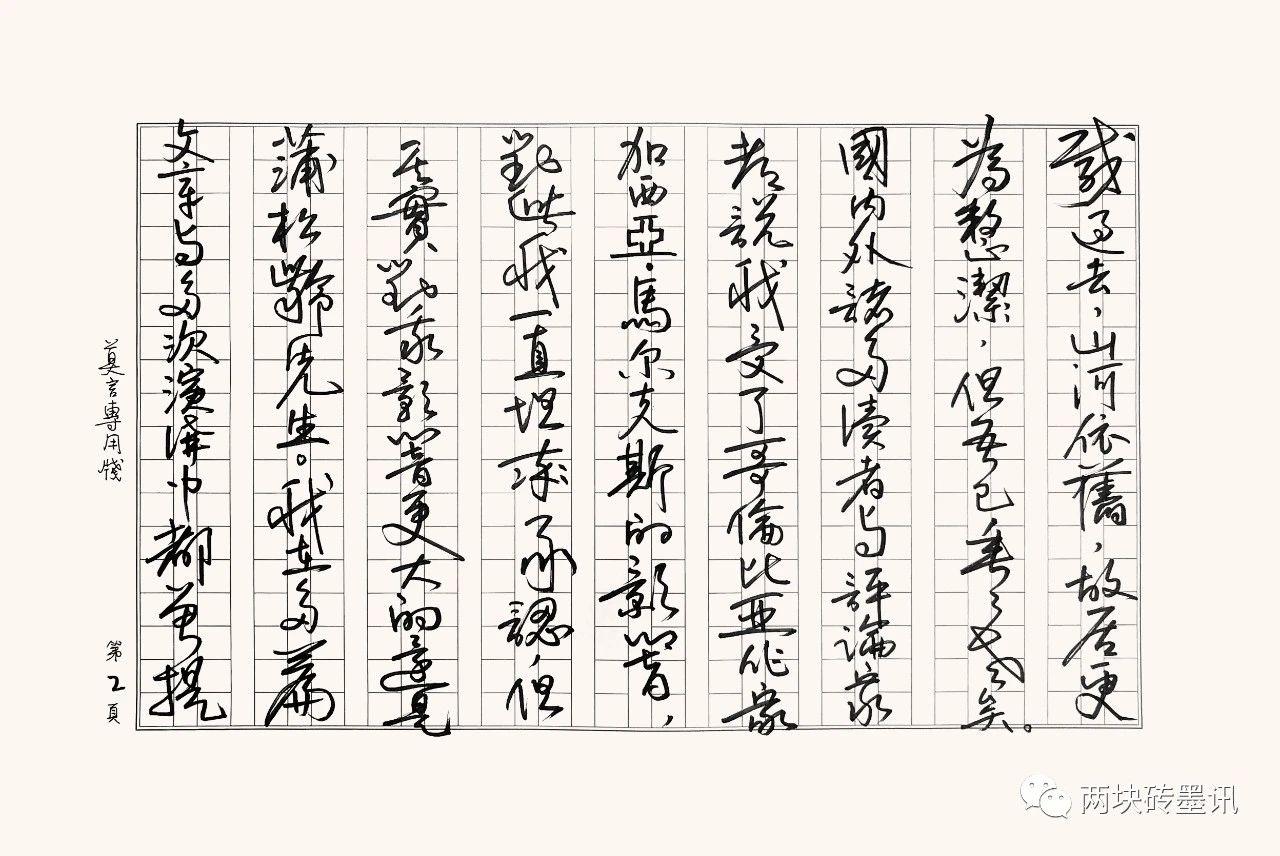 載過去，山河依舊，故居更
為整潔，但吾已垂垂老矣。
國内外諸多讀者与評論家
都說我受了哥倫比亞作家
加西亞·馬尔克斯的影響，
對此我一直坦率承認，但
其實對我影響更大的還是
蒲松齡先生。我在多篇
文章与多次演講中都曾提
莫言專用牋
第2頁
两块砖墨讯